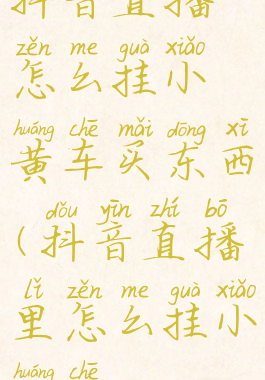 抖音直播
zěn me guà xiǎo
怎么挂小
huáng chē mǎi dōng xī
黄车买东西
dǒu yīn zhí bō
(抖音直播
lǐ zěn me guà xiǎo
里怎么挂小
huáng chē